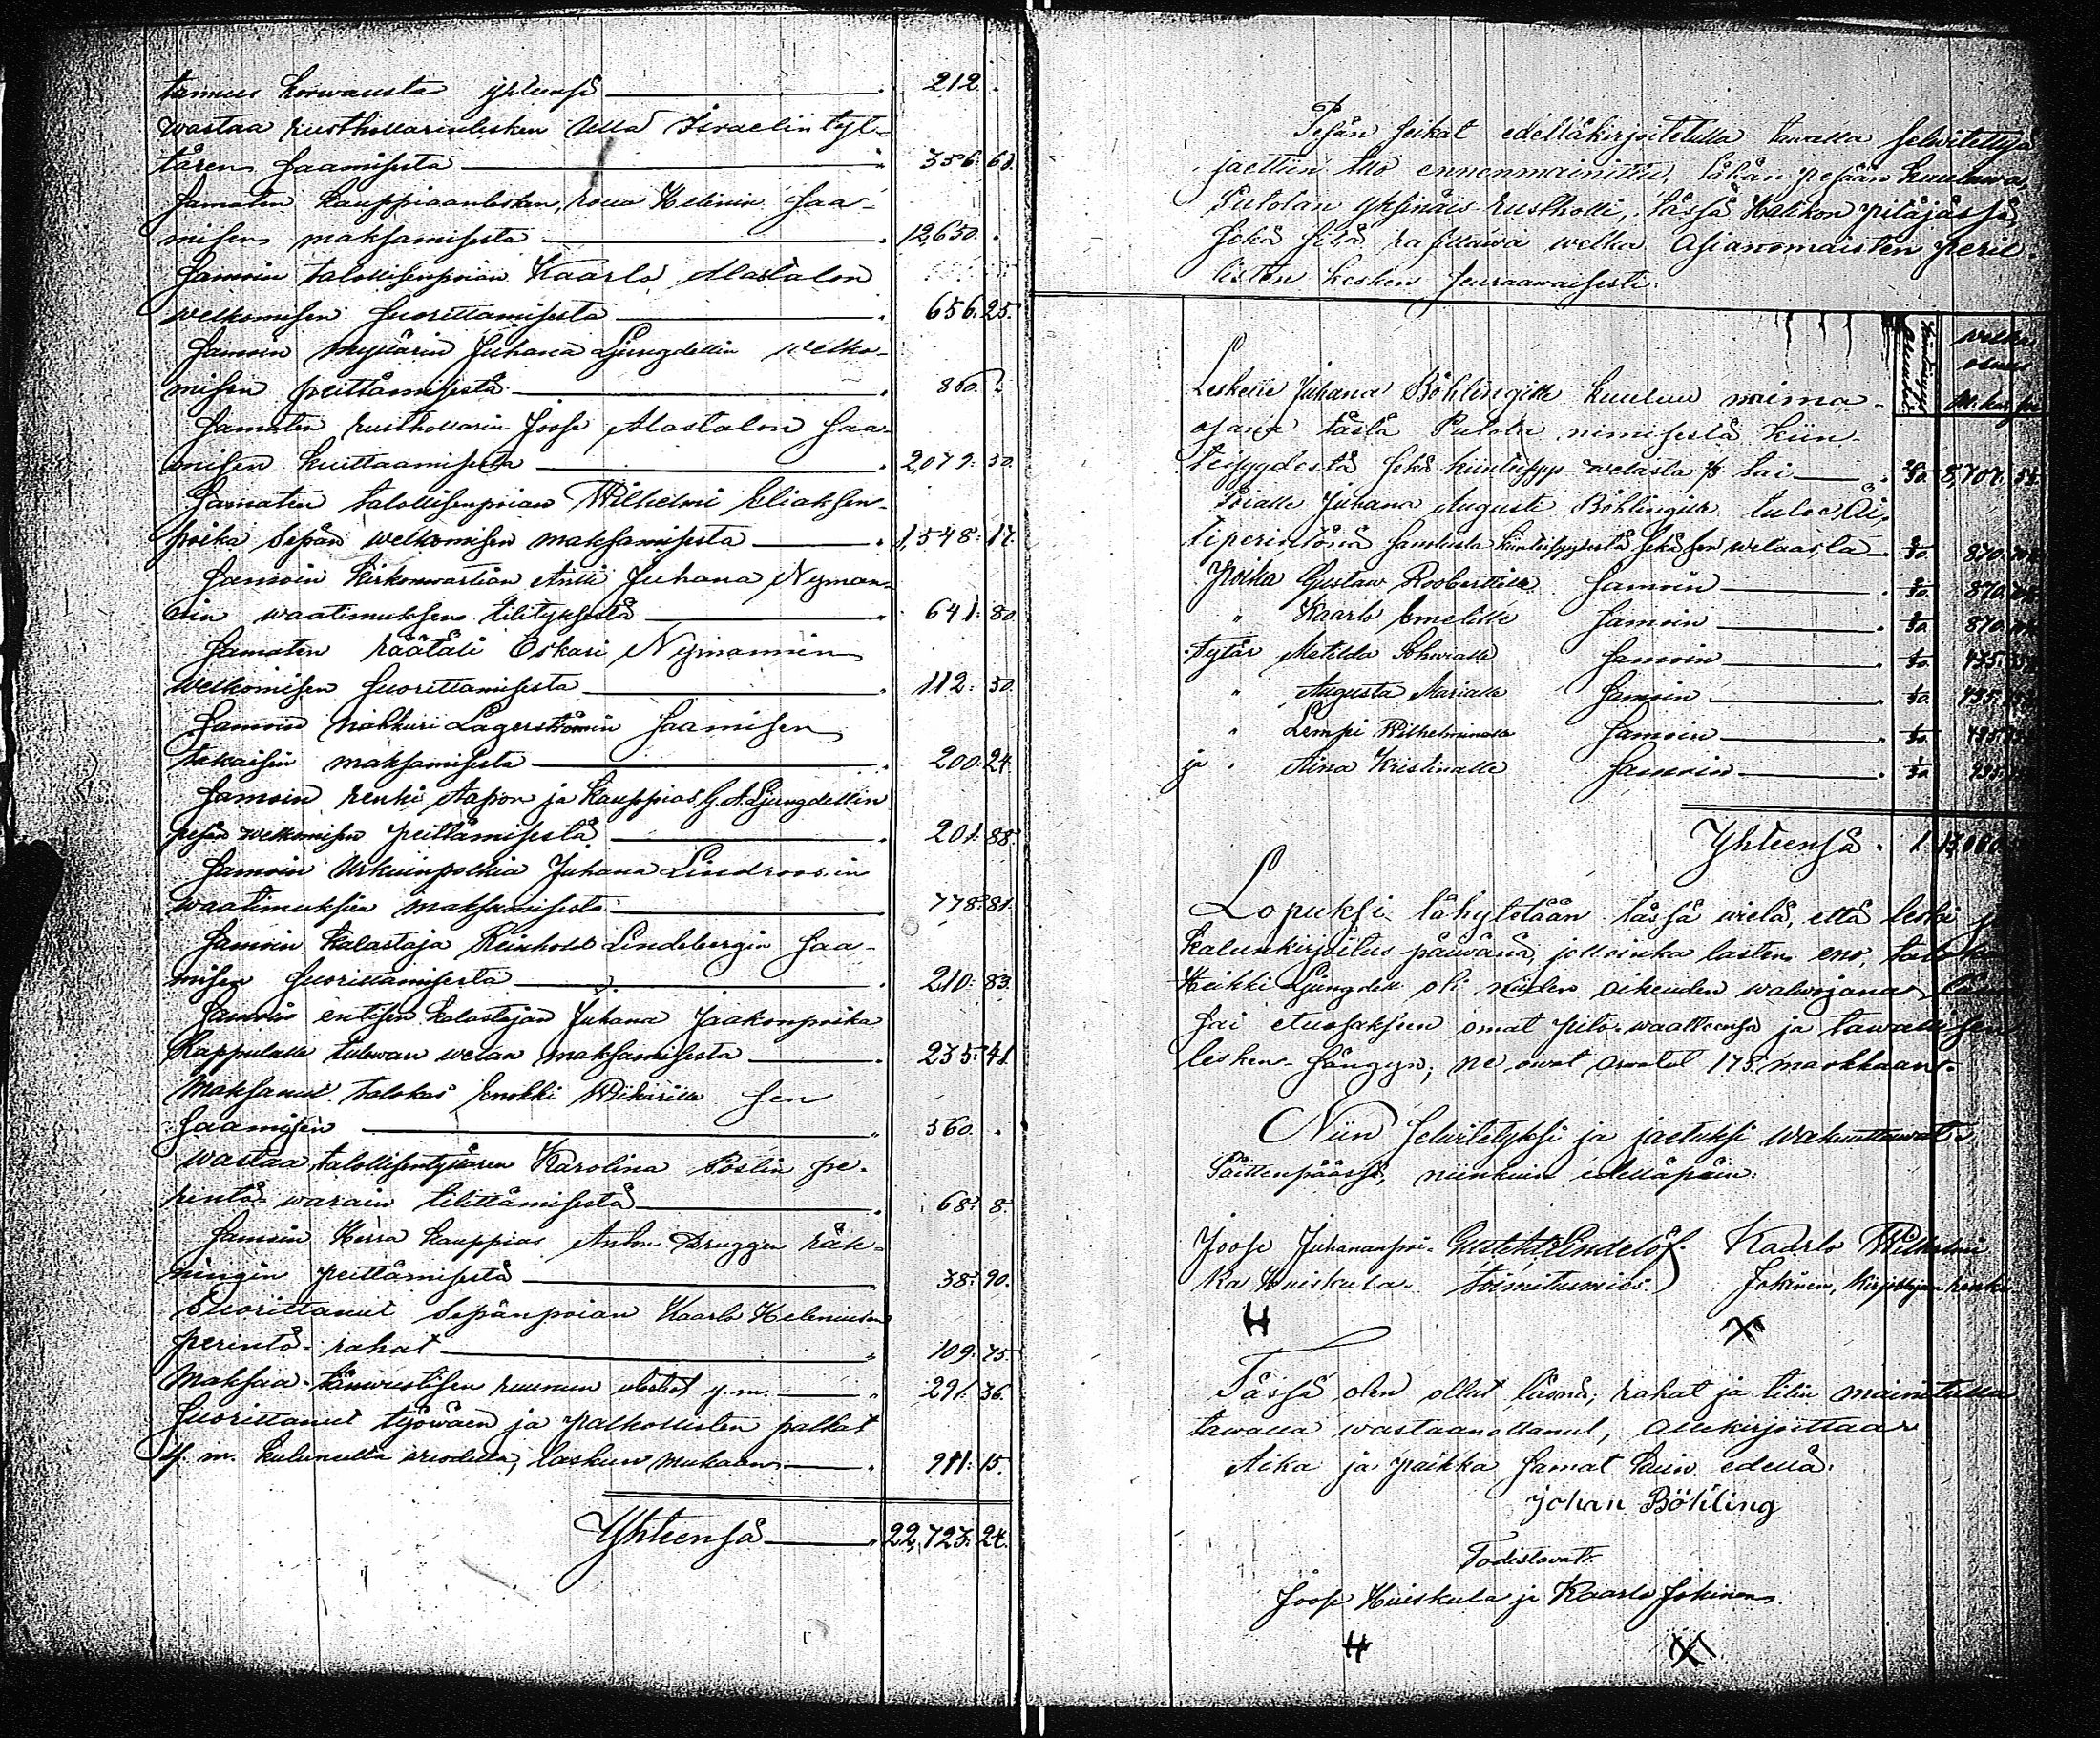 tannus korwausta yhteensä — " 212. "
wastaa rusthollarinlesken Ulla Israelintyt-
tären saamisesta — " 356. 68.
Samaten kauppiaanlesken, rouwa Helinin saa-
misen maksamisesta — " 12,650. "
Samoin talollisenpoian Kaarlo Alastalon
welkomisen suorittamisesta — " 656. 25.
Samoin myllärin Juhana Ljungdellin welko-
misen peittämisestä — " 860. "
Samaten rusthollarin Joose Alastalon saa-
misen kuittaamisesta — " 2,079. 50.
Samaten talollisenpoian Wilhelmi Eliaksen-
poika Sepän welkomisen maksamisesta — " 1,548. 17.
Samoin kirkonwartian Antti Juhana Nyman-
nin waatimuksen tilityksestä — " 641. 80.
Samaten räätäli Oskari Nymannin
welkomisen suorittamisesta — " 112. 50.
Samoin nahkuri Lagerströmin saamisen
takaisin maksamisesta — " 200. 24.
Samoin renki Aapon ja kauppias G. A. Ljungdellin
pesän welkomisen peittämisestä — " 201. 88.
Samoin Urkuinpolkia Juhana Lindroosin
waatimuksien maksamisesta — 778. 81.
Samoin kalastaja Reinhold Lindebergin saa-
misen suorittamisesta — " 210. 83.
Samoin entisen kalastajan Juhana Jaakonpoika
Rappulalle tulewan welan maksamisesta — " 235. 41.
Maksanut talokas Enokki Wikirille sen
saamisen — " 560. "
wastaa talollisentyttären Karolina Poslin pe-
rintö-warain tilittämisestä — " 68. 8.
Samoin Herra kauppias Anton Bruggen räk-
ningin peittämisestä — " 38. 90.
Suorittanut Sepänpoian Kaarlo Heleniuksen
perintö-rahat — " 109. 75.
Maksaa tämwuotisen ruunun ulostot y. m. — " 291. 36.
Suorittanut työwäen ja palkollisten palkat
y. m. kuluneelta wuodelta, laskun mukaan — " 911. 15.
Yhteensä — " 22,723. 24.
Pesän seikat edelläkirjoitetulla tawalla selwitettyä
jaettiin tuo ennenmainittu, tähän pesään kuuluwa,
Putolan yksinäis-rustholli, tässä Halikon pitäjässä,
sekä sitä rasittawa welka asianomaisten peril-
listen kesken seuraawaisesti.
welka
osuus
Mrkaa
Leskelle Juhana Böhlingille kuuluu naima-
osana tästä Putola nimisestä kiin-
teisyydestä sekä kiinteisyys-welasta ⅔ tai — " 20/30. 8,707. 
Poialle Juhana Auguste Böhlingille tulee Äi-
tiperintönä samasta kiinteisyydestä sekä sen welaasta — 2/30. 870.
Poika Gustaw Roobertille Samoin — " 2/30. 870.
" Kaarlo Emelille Samoin — " 2/30. 870.
Tytär Matilda Sohwialle Samoin — " 1/30. 435.
" Augusta Marialle Samoin — " 1/30. 435.
" Lempi Wilhelminalle Samoin — " 1/30. 435.
ja " Aina Kristinalle Samoin — " 1/30. 435.
Yhteensä " 1
Lopuksi lähytetään tässä wielä, että leski
kalunkirjoitus päiwänä, jolloinka lasten eno,
Heikki Ljungdell oli niiden oikeuden walwojana
sai etuosaksen omat pito-waatteensa ja tawallisen
lesken-sängyn; ne owat arwatut 175 markkaan.
Niin selwitetyksi ja jaetuksi wakuuttawat:
Päittenpäässä, niinkuin edelläpäin.
Joose Juhananpoi- Gustaf Lindelöf. Kaarlo Wilhelmi
ka Kuiskula. toimitusmies. Jokinen, kirjoittajan renki.
H X
Tässä olen ollut läsnä, rahat ja tilin mainitulla
tawalla wastaanottanut, allekirjoittaa
Aika ja paikka samat kuin edellä.
Johan Böhling
Todistavat:
Joose Kuiskula ja Kaarlo Jokinen.
H X